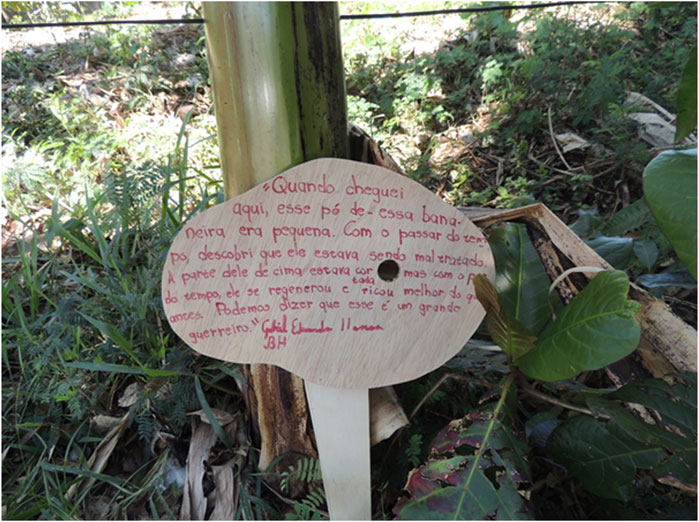 "Quando cheguei
aqui, esse pó de essa bana-
neira era pequena. Com o passar do tem-
po, descobri que ele estava sendo maltratado.
A parte dele de cima estava cor tada mas com o
do tempo, ele se regenerou e ficou melhor do q
antes. Podemos dizer que esse é un grande
guerreiro."
BH